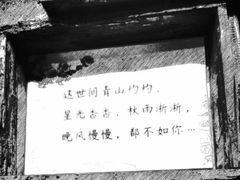 这世间青山灼灼，
星光杳杳，秋雨淅淅，
晚风慢慢，都不如你…